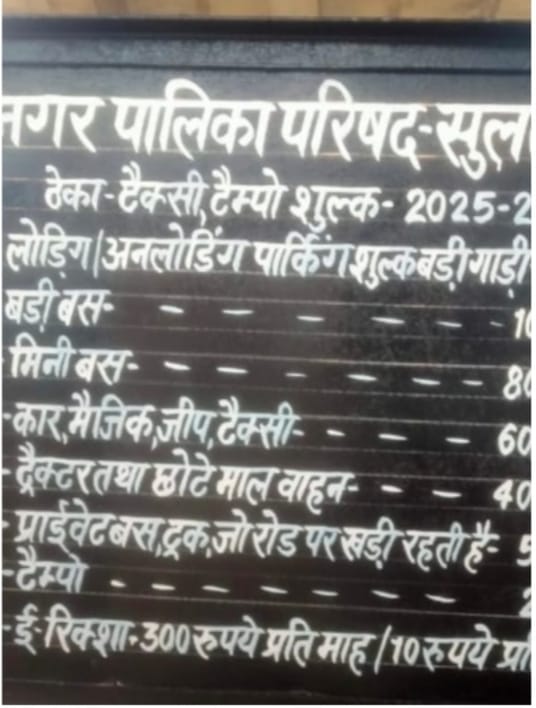 नगर पालिका परिषद-सुल
ठेका-टैक्सी,टैम्पो शुल्क- 2025-2
लोड़िग/अनलोडिंग पार्किंग शुल्क बड़ी गाड़ी
बडी बस- - - - - - - - 10
मिनी बस- - - - - - - - 80
-कार,मैजिक,जीप,टैक्सी- - - - 60
-ट्रैक्टर तथा छोटे माल वाहन- - - 40
-प्राईवेट बस,ट्रक,जो रोड पर खड़ी रहती है- 5
-टैम्पो - - - - - - - 2
-ई-रिक्शा-300 रुपये प्रति माह/10 रुपये प्रति